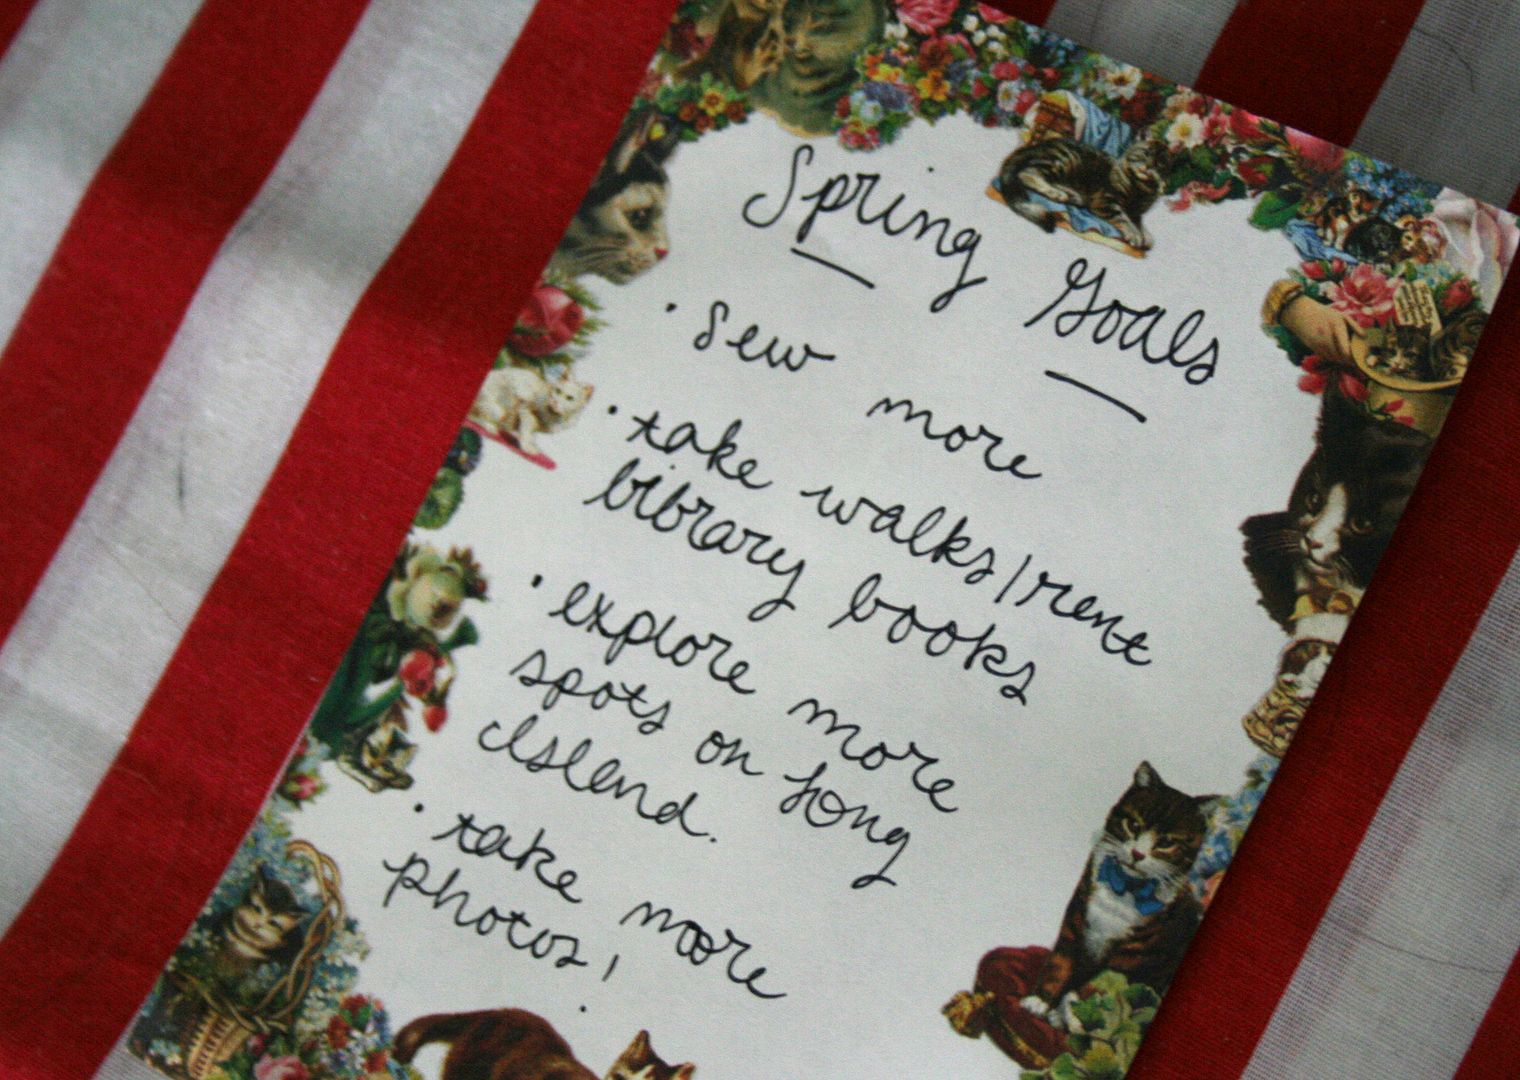 Spring Goals
· Sew more
· take walks/rent
library books
· explore more
spots on Long
Island.
· take more
photos!